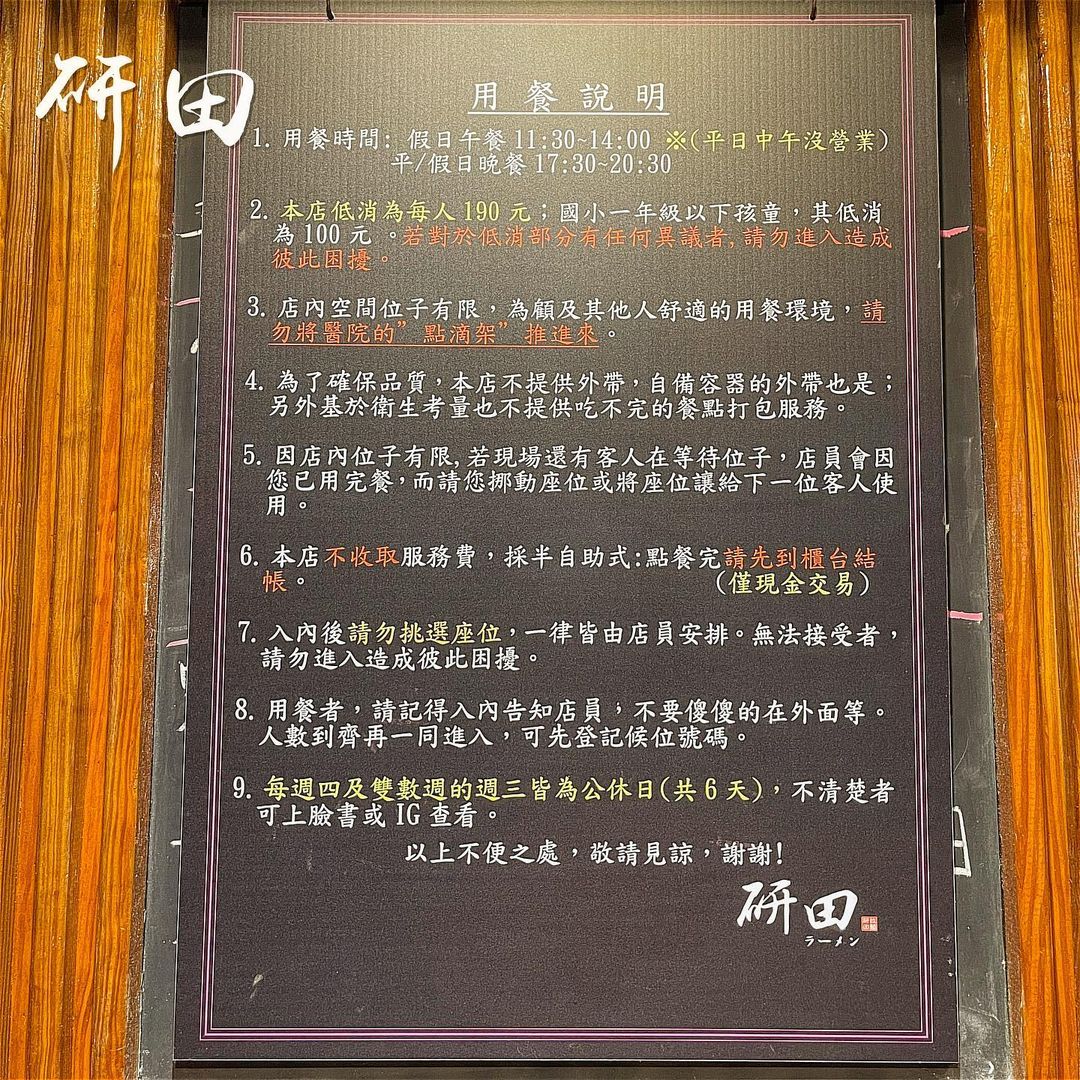 研田
用餐說明
1. 用餐時間: 假日午餐 11:30~14:00 ※(平日中午沒營業)
平/假日晚餐 17:30~20:30
2. 本店低消為每人 190 元；國小一年級以下孩童，其低消
為 100 元 。若對於低消部分有任何異議者,請勿進入造成
彼此困擾。
3. 店內空間位子有限，為顧及其他人舒適的用餐環境，請
勿將醫院的”點滴架”推進來。
4. 為了確保品質，本店不提供外帶，自備容器的外帶也是；
另外基於衛生考量也不提供吃不完的餐點打包服務。
5. 因店內位子有限,若現場還有客人在等待位子，店員會因
您已用完餐，而請您挪動座位或將座位讓給下一位客人使
用。
6. 本店不收取服務費，採半自助式:點餐完請先到櫃台結
帳。 (僅現金交易)
7. 入內後請勿挑選座位，一律皆由店員安排。無法接受者，
請勿進入造成彼此困擾。
8. 用餐者，請記得入內告知店員，不要傻傻的在外面等。
人數到齊再一同進入，可先登記候位號碼。
9. 每週四及雙數週的週三皆為公休日(共 6 天)，不清楚者
可上臉書或 IG 查看。
以上不便之處，敬請見諒，謝謝!
研田
ラーメン